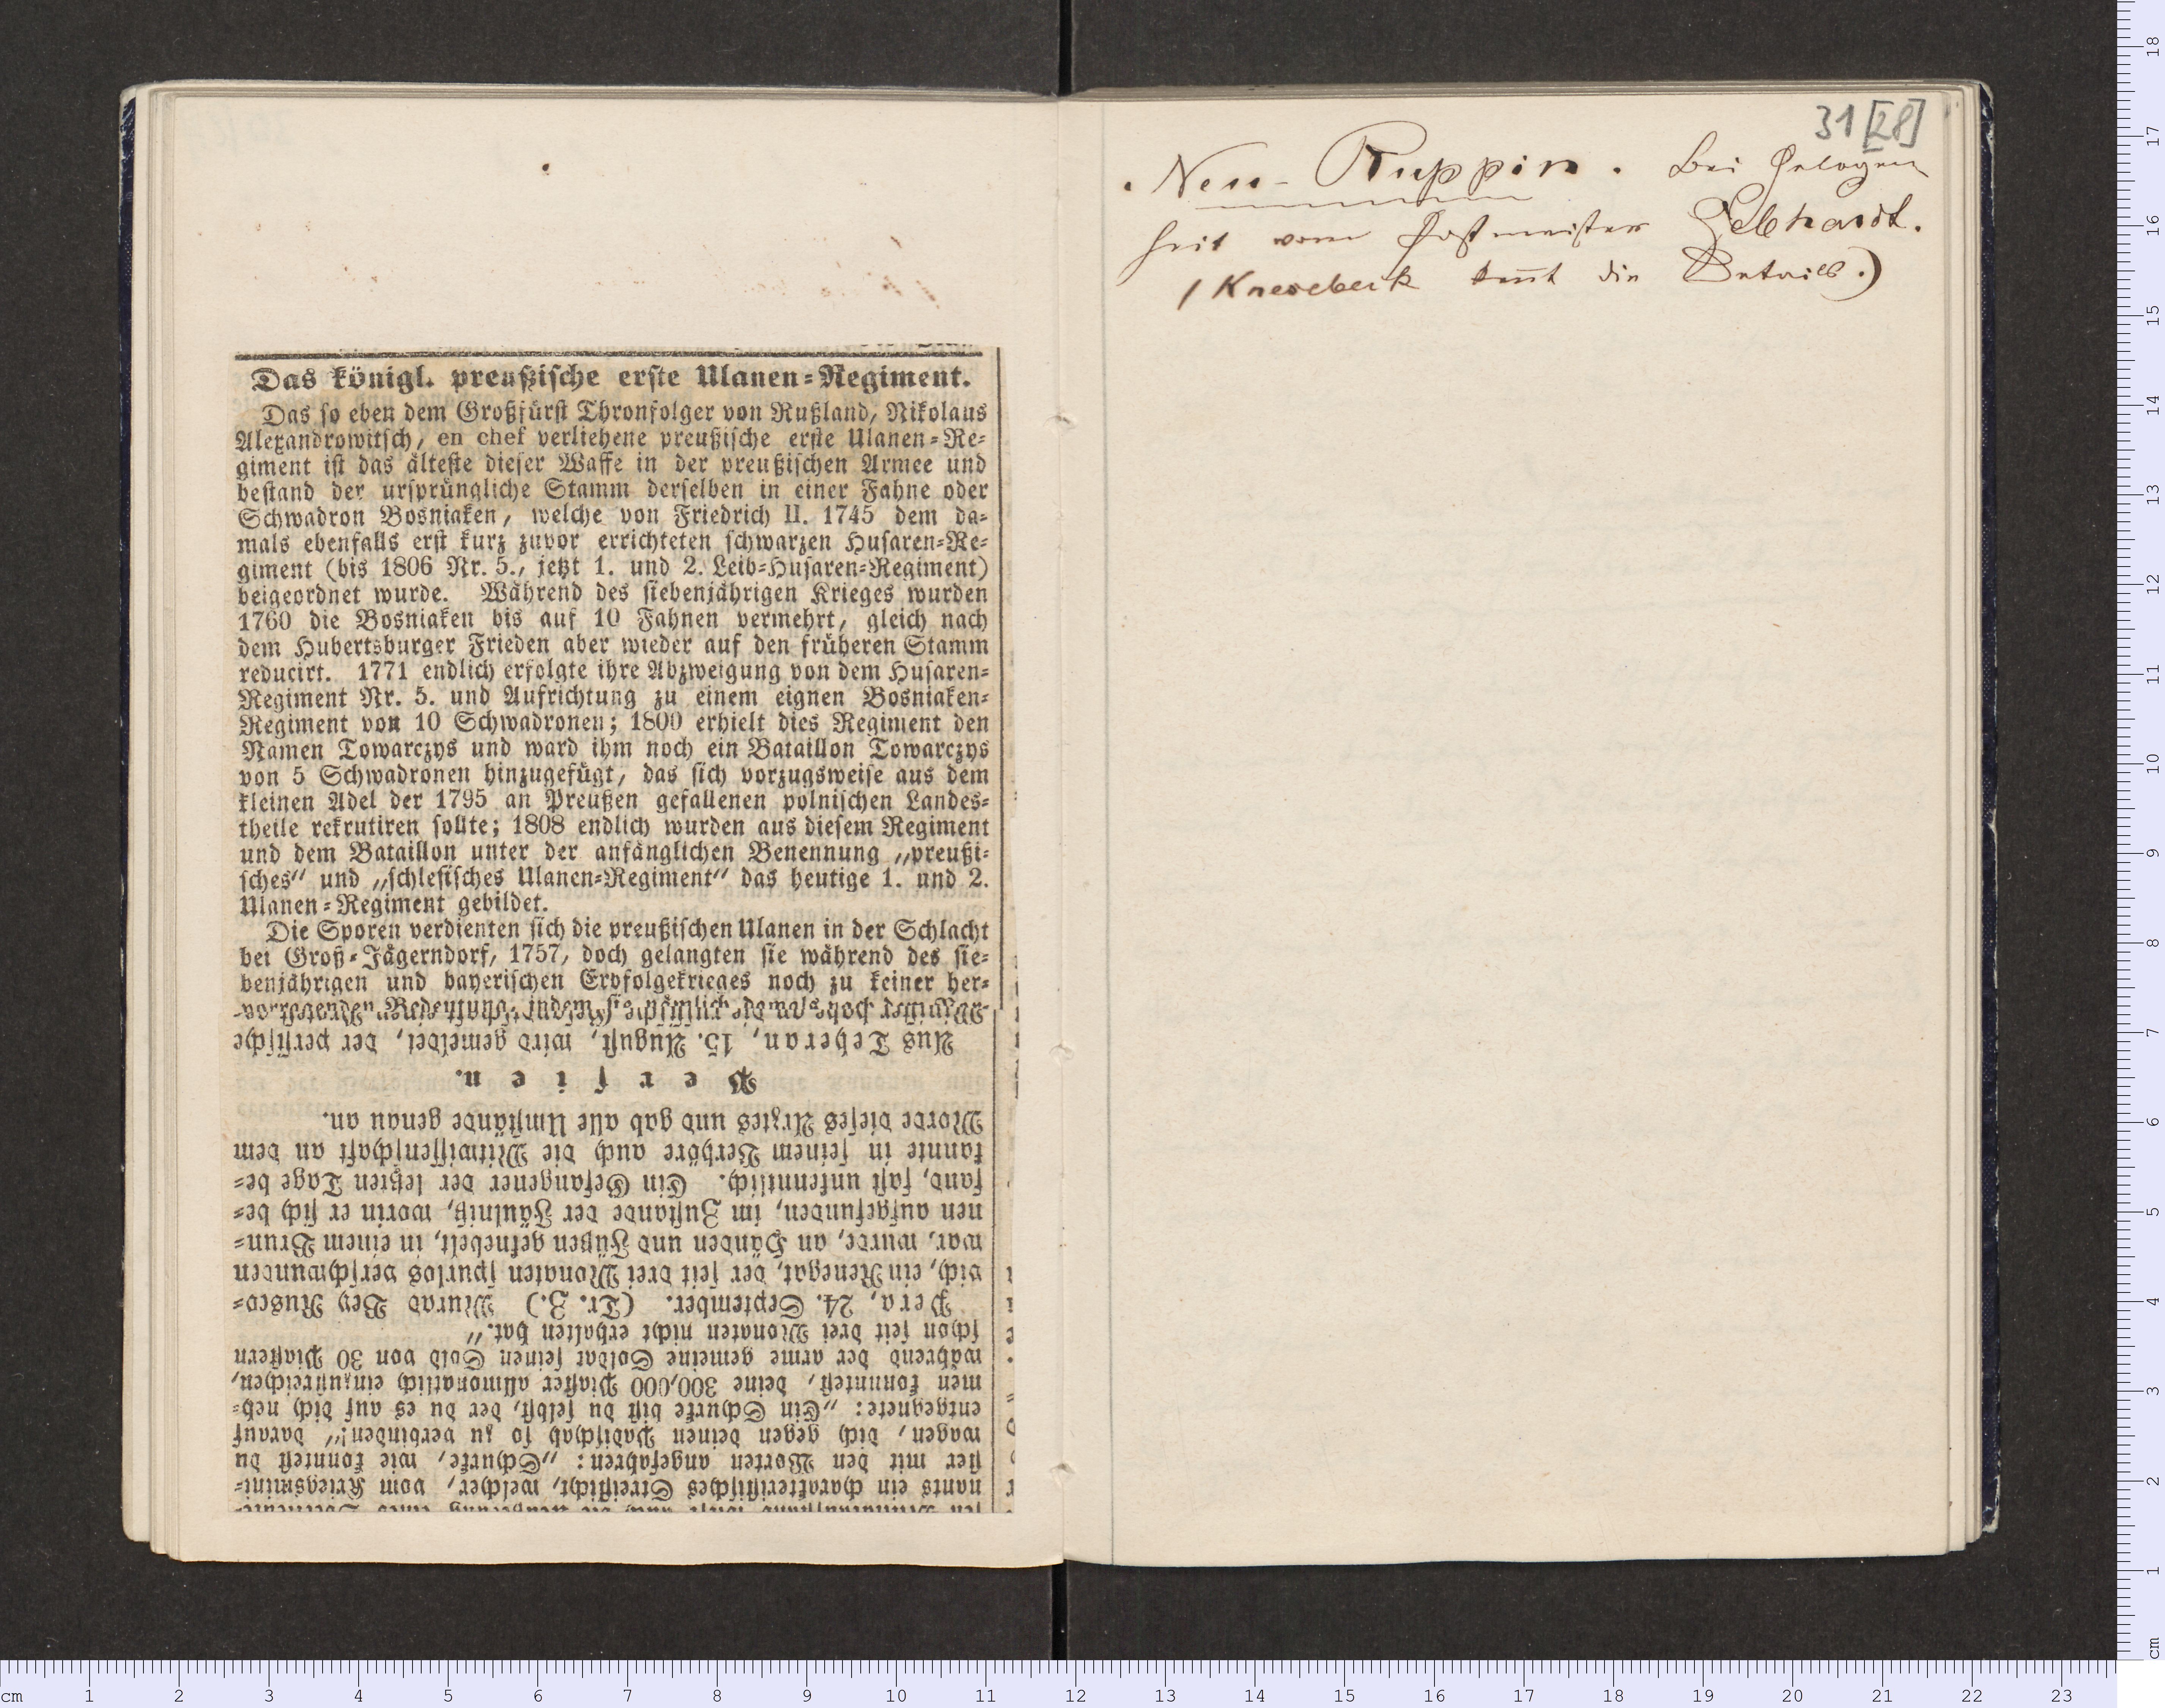 Das königl. preußische erste Ulanen-Regiment.
Das so eben dem Großfürst Thronfolger von Rußland, Nikolaus
Alexandrowitsch, en chef verliehene preußische erste Ulanen-Re-
giment ist das älteste dieser Waffe in der preußischen Armee und
bestand der ursprüngliche Stamm derselben in einer Fahne oder
Schwadron Bosniaken, welche von Friedrich II. 1745 dem da-
mals ebenfalls erst kurz zuvor errichteten schwarzen Husaren-Re-
giment (bis 1806 Nr. 5., jetzt 1. und 2. Leib-Husaren-Regiment)
beigeordnet wurde. Während des siebenjährigen Krieges wurden
1760 die Bosniaken bis auf 10 Fahnen vermehrt, gleich nach
dem Hubertsburger Frieden aber wieder auf den früheren Stamm
reducirt. 1771 endlich erfolgte ihre Abzweigung von dem Husaren-
Regiment Nr. 5. und Aufrichtung zu einem eignen Bosniaken-
Regiment von 10 Schwadronen; 1800 erhielt dies Regiment den
Namen Towarczys und ward ihm noch ein Bataillon Towarczys
von 5 Schwadronen hinzugefügt, das sich vorzugsweise aus dem
kleinen Adel der 1795 an Preußen gefallenen polnischen Landes-
theile rekrutiren sollte; 1808 endlich wurden aus diesem Regiment
und dem Bataillon unter der anfänglichen Benennung „preußi-
sches“ und „schlesisches Ulanen-Regiment“ das heutige 1. und 2.
Ulanen-Regiment gebildet.
Die Sporen verdienten sich die preußischen Ulanen in der Schlacht
bei Groß-Jägerndorf, 1757, doch gelangten sie während des sie-
benjährigen und bayerischen Erbfolgekrieges noch zu keiner her-
vorragenden Bedeutung, indem sie
nants ein charakteristisches Streiflicht, welcher, vom Kriegsmini-
ster mit den Worten angefahren: „Schurke, wie konntest du
wagen, dich gegen deinen Padischah so zu verbinden!“ darauf
entgegnete: „Ein Schurke bist du selbst, der du es auf dich neh-
men konntest, deine 300,000 Piaster allmonatlich einzustreichen,
während der arme gemeine Soldat seinen Sold von 30 Piastern
schon seit drei Monaten nicht erhalten hat.“
Pera, 24. September. (Tr. Z.) Murad Bey Rusco-
vich, ein Renegat, der seit drei Monaten spurlos verschwunden
war, wurde, an Händen und Füßen geknebelt, in einem Brun-
nen aufgefunden, im Zustande der Fäulniß, worin er sich be-
fand, fast unkenntlich. Ein Gefangener der letzten Tage be-
kannte in seinem Verhöre auch die Mitwissenschaft an dem
Morde dieses Arztes und gab alle Umstände genau an.
Persien.
Aus Teheran, 15. August, wird gemeldet, der persische
31 [28]
. Neu-Ruppin. Bei Gelegen
heit vom Postmeister Gebhardt.
(Knesebeck kennt die Details.)